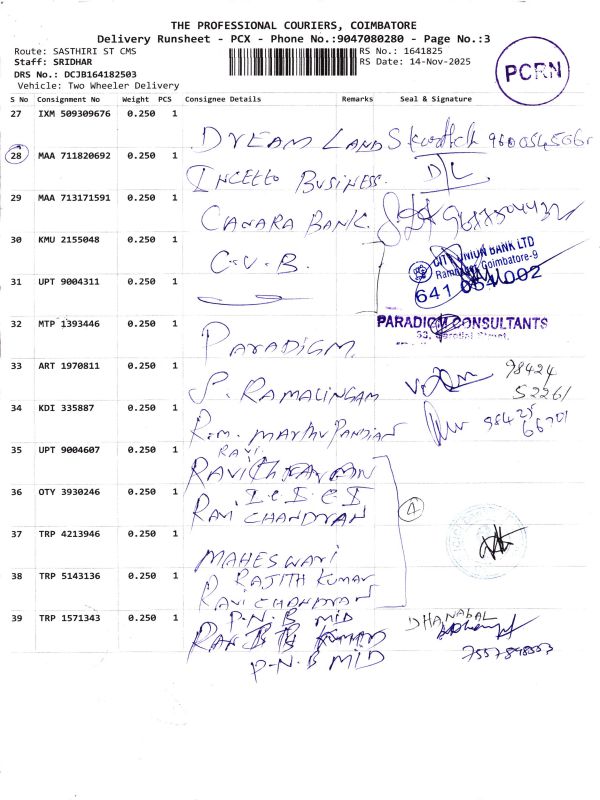 THE PROFESSIONAL COURIERS, COIMBATORE
Delivery Runsheet - PCX - Phone No.:9047080280 - Page No.:3
Route: SASTHIRI ST CMS
RS No.: 1641825
Staff: SRIDHAR
RS Date: 14-Nov-2025
DRS No.: DCJB164182503
Vehicle: Two Wheeler Delivery
PCRN
S No Consignment No Weight PCS Consignee Details Remarks Seal & Signature
27 IXM 509309676 0.250 1
DREAM LAND
28 MAA 711820692 0.250 1
INCETTO BUSINESS. D/L
29 MAA 713171591 0.250 1
CANARA BANK.
30 KMU 2155048 0.250 1
C-U-B.
CITY UNION BANK LTD
Coimbatore-9
31 UPT 9004311 0.250 1
641
32 MTP 1393446 0.250 1
PARADIGM CONSULTANTS
PARADIGM.
33 ART 1970811 0.250 1
S. RAMALINGAM
98424
52261
34 KDI 335887 0.250 1
98425
66701
35 UPT 9004607 0.250 1
RAVI
36 OTY 3930246 0.250 1
RAVI CHANDRAN
4
37 TRP 4213946 0.250 1
MAHESWARI
38 TRP 5143136 0.250 1
RAJITH KUMAR
RAVI CHANDRAN
39 TRP 1571343 0.250 1
P-N-B MID
DHANABAL
P-N-B MID